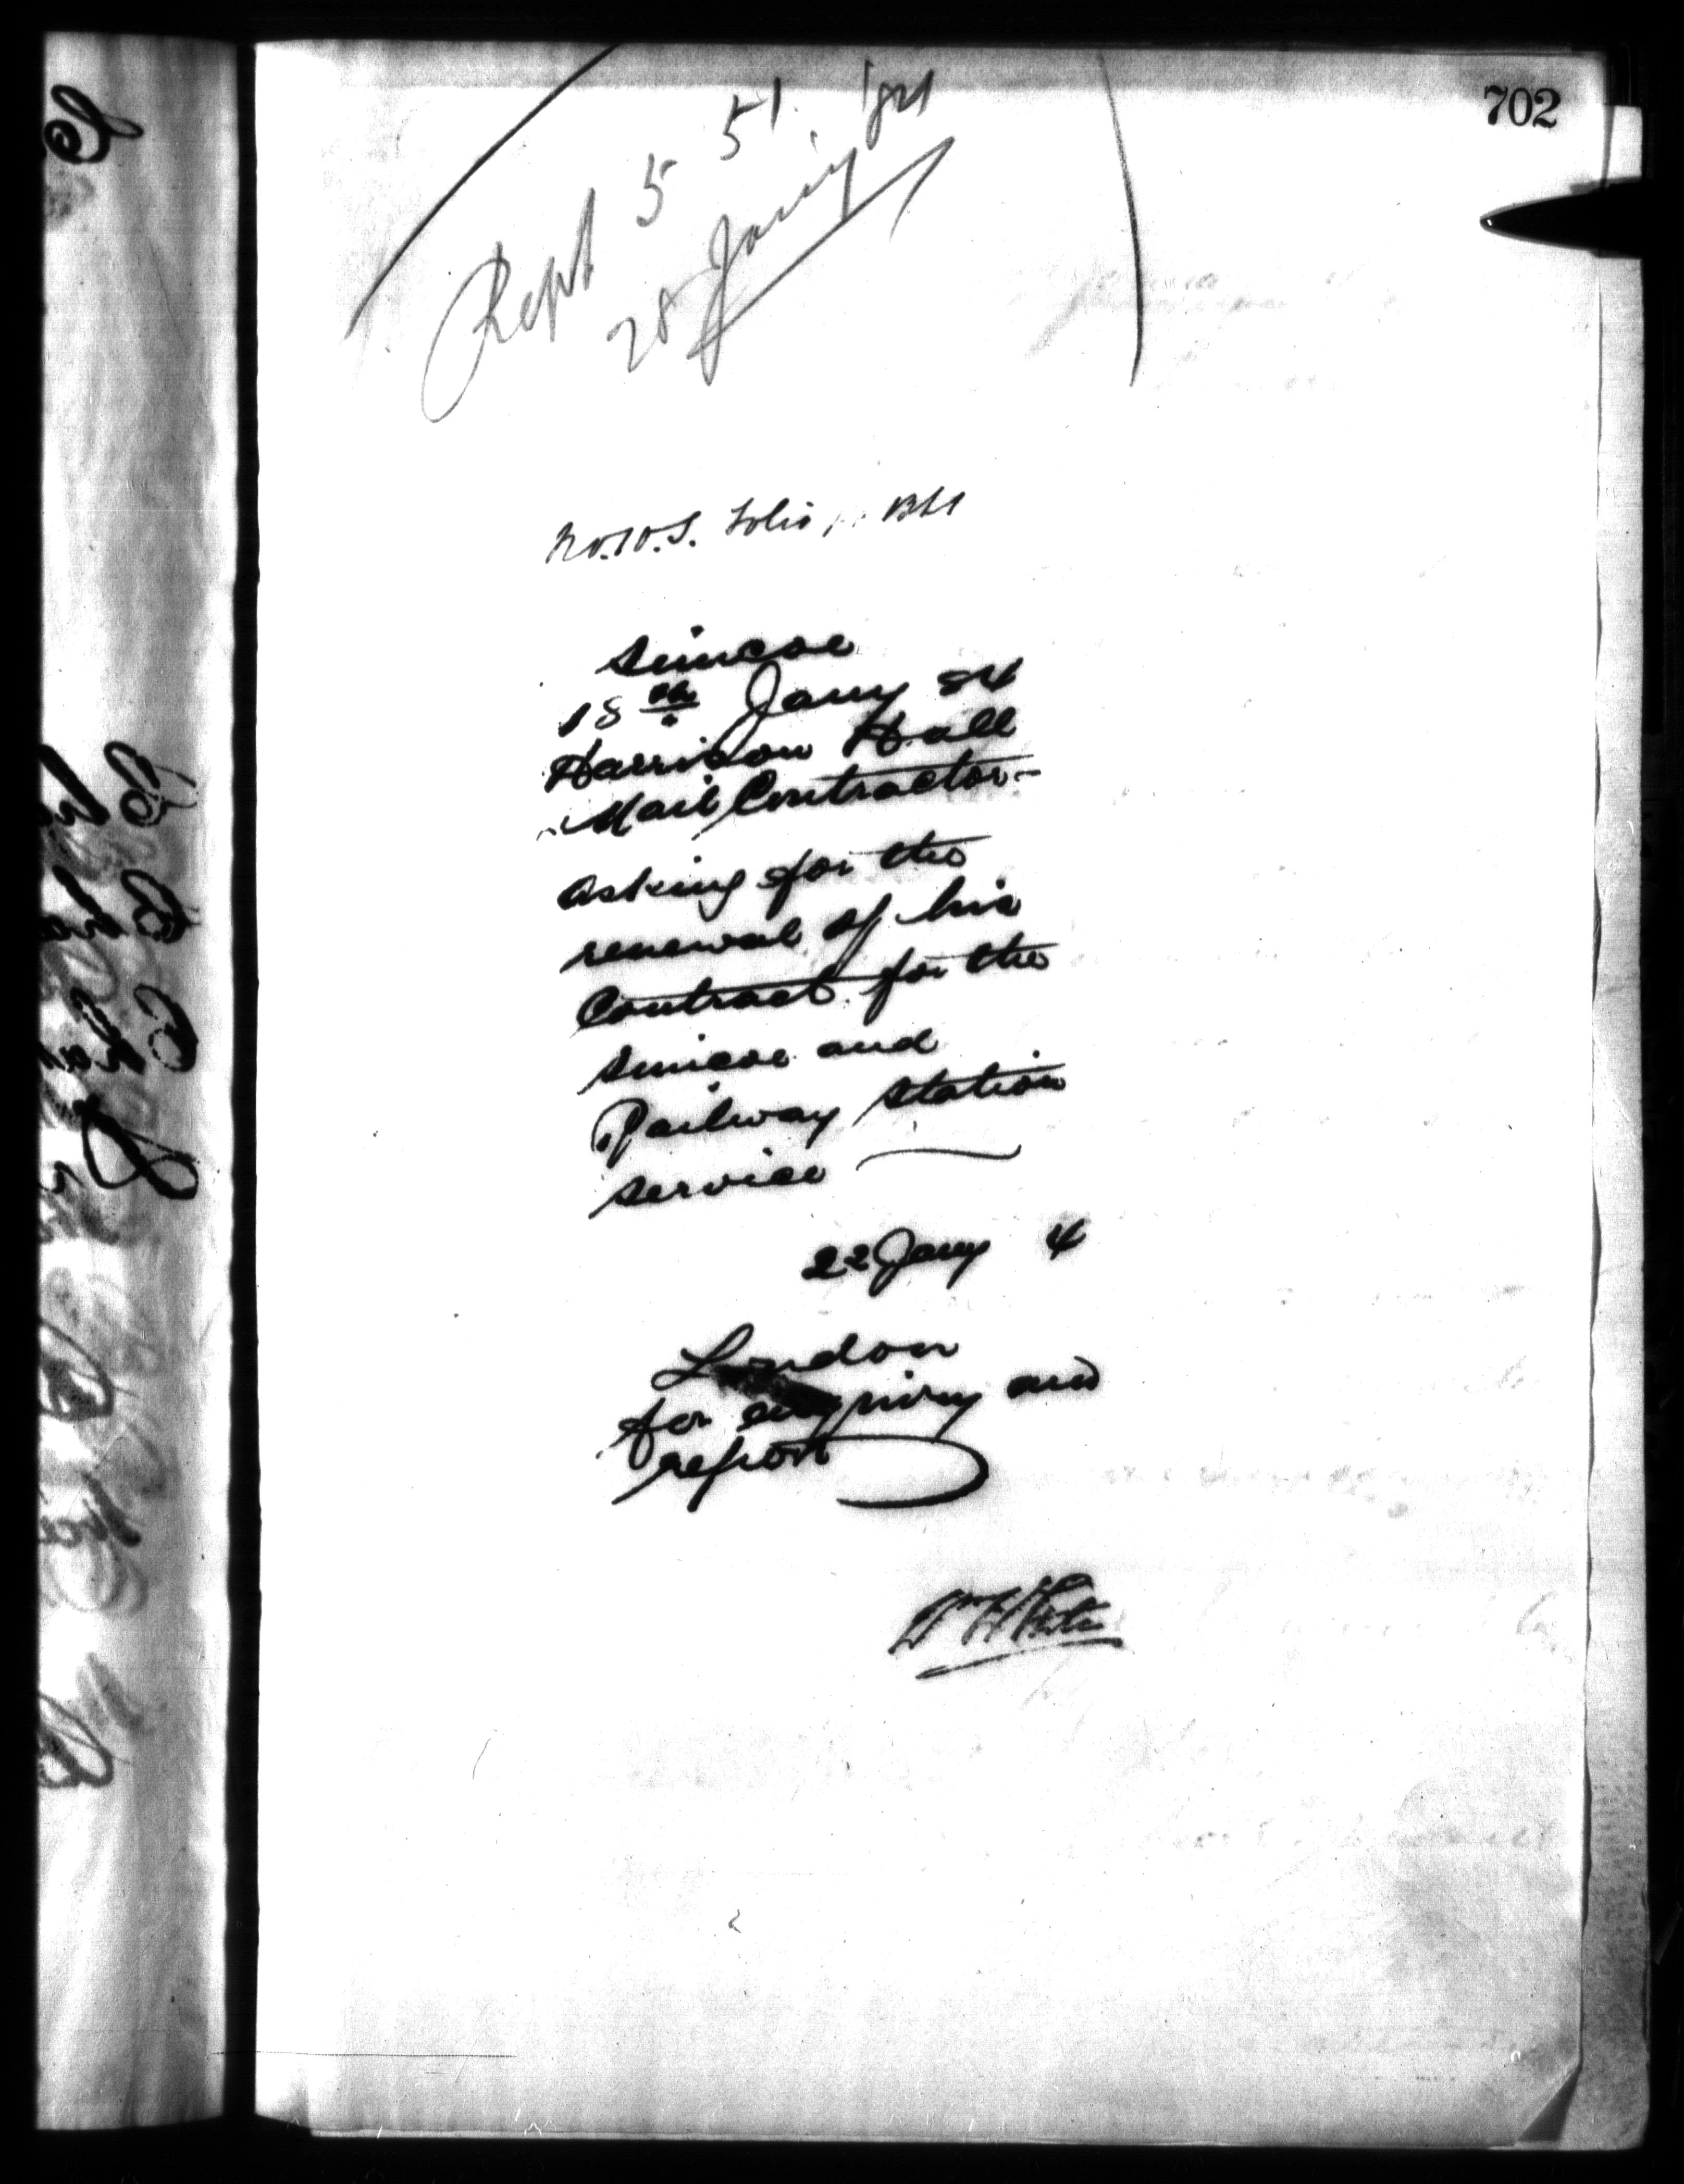 702
Rept 5 51
28 Jany
Simcoe
18th Jany 84
Harrison Hall
Mail Contractor-
Asking for the
renewal of his
Contract for the
Simcoe and
Railway Station
service
22 Jany 4
London
for enquiry and
report
Wm H White